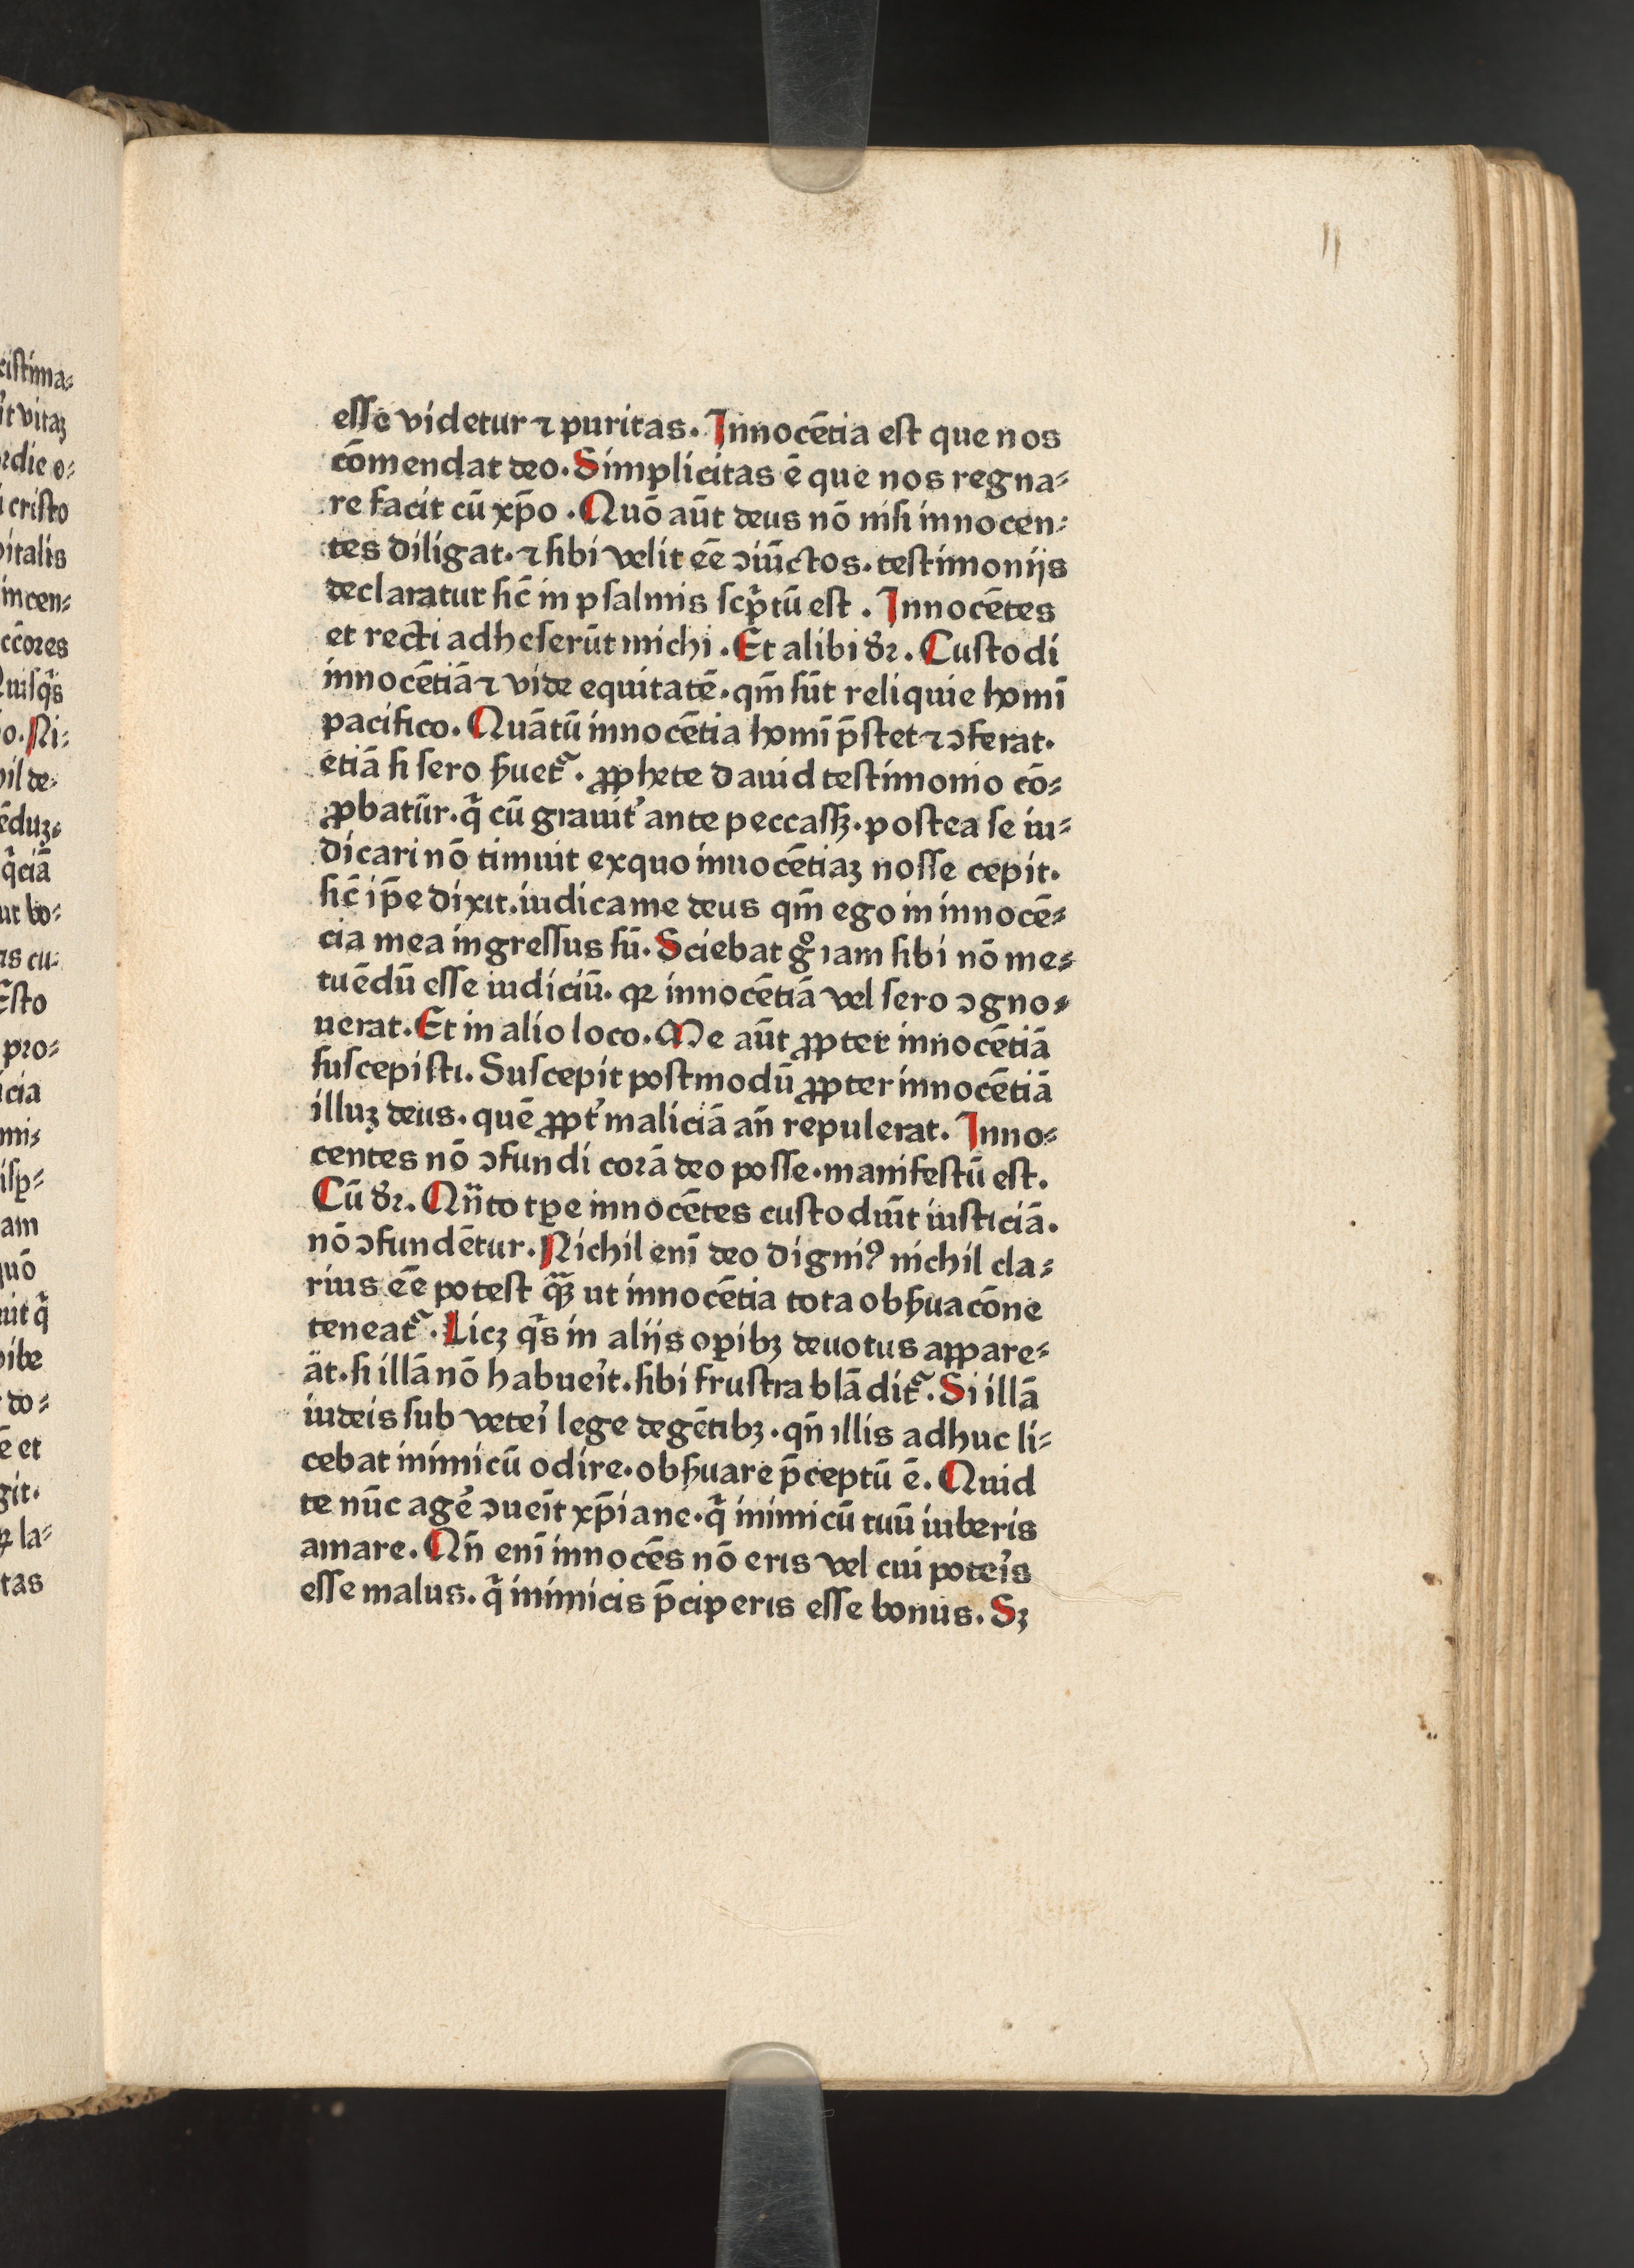 esse videtur ⁊ puritas. Innocētia est que nos
cōmendat deo. Simplicitas ē que nos regna⸗
re facit cū xp̄o. Quō aūt deus nō nisi innocen⸗
tes diligat. ⁊ sibi velit eē̄ ↄiūctos. testimonijs
declaratur sic̄ in psalmis scp̄tū est. Innocētes
et recti adheserūt michi. Et alibi dꝛ. Custodi
innocētiā ⁊ vide equitatē. qm̄ sūt reliquie homī
pacifico. Quātū innocētia homī p̄stet ⁊ ↄferat.
etiā si sero ẜuet᷑. ꝓphete dauid testimonio cō⸗
ꝓbatūr. q̇ cū grauit᾽ ante peccassꝫ. postea se iu⸗
dicari nō timuit exquo innocētiaꝫ nosse cepit.
sic̄ ip̄e dixit. iudica me deus qm̄ ego in innocē⸗
cia mea ingressus sū. Sciebat gͦ iam sibi nō me⸗
tuēdū esse iudiciū. qꝛ innocētiā vel sero ↄgno⸗
uerat. Et in alio loco. Me aūt ꝓpter innocētiā
suscepisti. Suscepit postmodū ꝓpter innocētiā
illuꝫ deus. quē ꝓpt᾽ maliciā an̄ repulerat. Inno⸗
centes nō ↄfundi corā deo posse. manifestū est.
Cū dꝛ. Qn̄ to tp̱e innocētes custodiūt iusticiā.
nō ↄfundētur. Nichil enī deo digniꝰ nichil cla⸗
rius eē̄ potest qᷓꝫ ut innocētia tota obẜuacōne
teneat᷑. Licꝫ qͥs in alijs oꝑibꝫ deuotus appare⸗
āt. si illā nō habueit̓. sibi frustra blādit᷑. Si illā
iudeis sub vetei̓ lege degētibꝫ. qn̄ illis adhuc li⸗
cebat inimicū odire. obẜuare p̄ceptū ē. Quid
te nūc agē ↄueīt xp̄iane. q̇ inimicū tuū iuberis
amare. Qn̄ enī innocēs nō eris vel cui potei̓s
esse malus. q̇ inimicis p̄ciperis esse bonus. Sꝫ